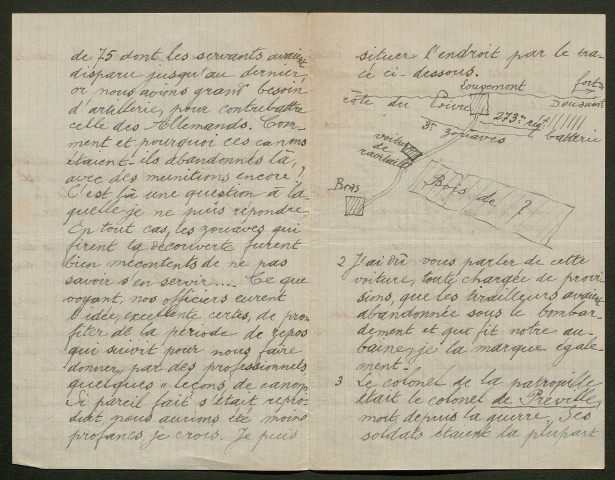 de 75 dont les servants avaient
disparu jusqu'au dernier,
or nous avions grand besoin
d'artillerie, pour contrebattre
celle des Allemands. Com-
ment et pourquoi ces canons
étaient-ils abandonnés là,
avec des munitions encore?
C'est là une question à la-
quelle je ne puis répondre
En tout cas, les zouaves qui
firent la découverte furent
bien mécontents de ne pas
savoir s'en servir.... Ce que
voyant, nos officiers eurent
l'idée, excellente certes, de pro-
fiter de la période de repos
qui suivit pour nous faire
donner, par des professionnels
quelques "leçons de canon".
Si pareil fait s'était repro-
duit nous aurions été moins
profanes je crois. Je puis
situer l'endroit par le tra-
cé ci-dessous.
Louvemont
fort de
Douaumont
côte du Poivre
273e rég.
batterie
3e zouaves
voiture
de
ravitaillt
Bras
Bois de ?
2 J'ai dû vous parler de cette
voiture, toute chargée de provi-
sions, que les tirailleurs avaient
abandonnée sous le bombar-
dement et qui fit notre au-
baine, je la marque égale-
ment-
3 Le colonel de la patrouille
était le colonel de Préville,
mort depuis la guerre. Ses
soldats étaient la plupart